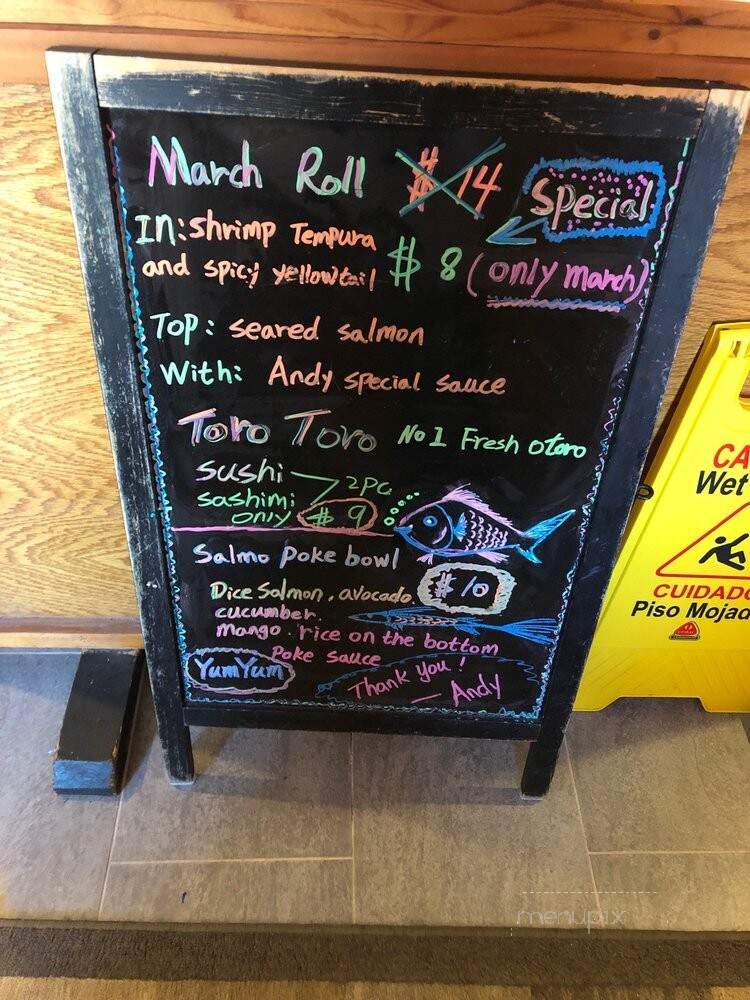 March Roll $14 Special
In: shrimp Tempura
and spicy yellowtail $8 (only march)
Top: seared salmon
With: Andy special sauce
Toro Toro No 1 Fresh otoro
sushi
sashimi 2pc
only $9
Salmo poke bowl
Dice Salmon, avocado $10
cucumber.
mango. rice on the bottom
Poke sauce
YumYum
Thank you!
— Andy
CA
Wet
CUIDADO
Piso Mojad
menupix